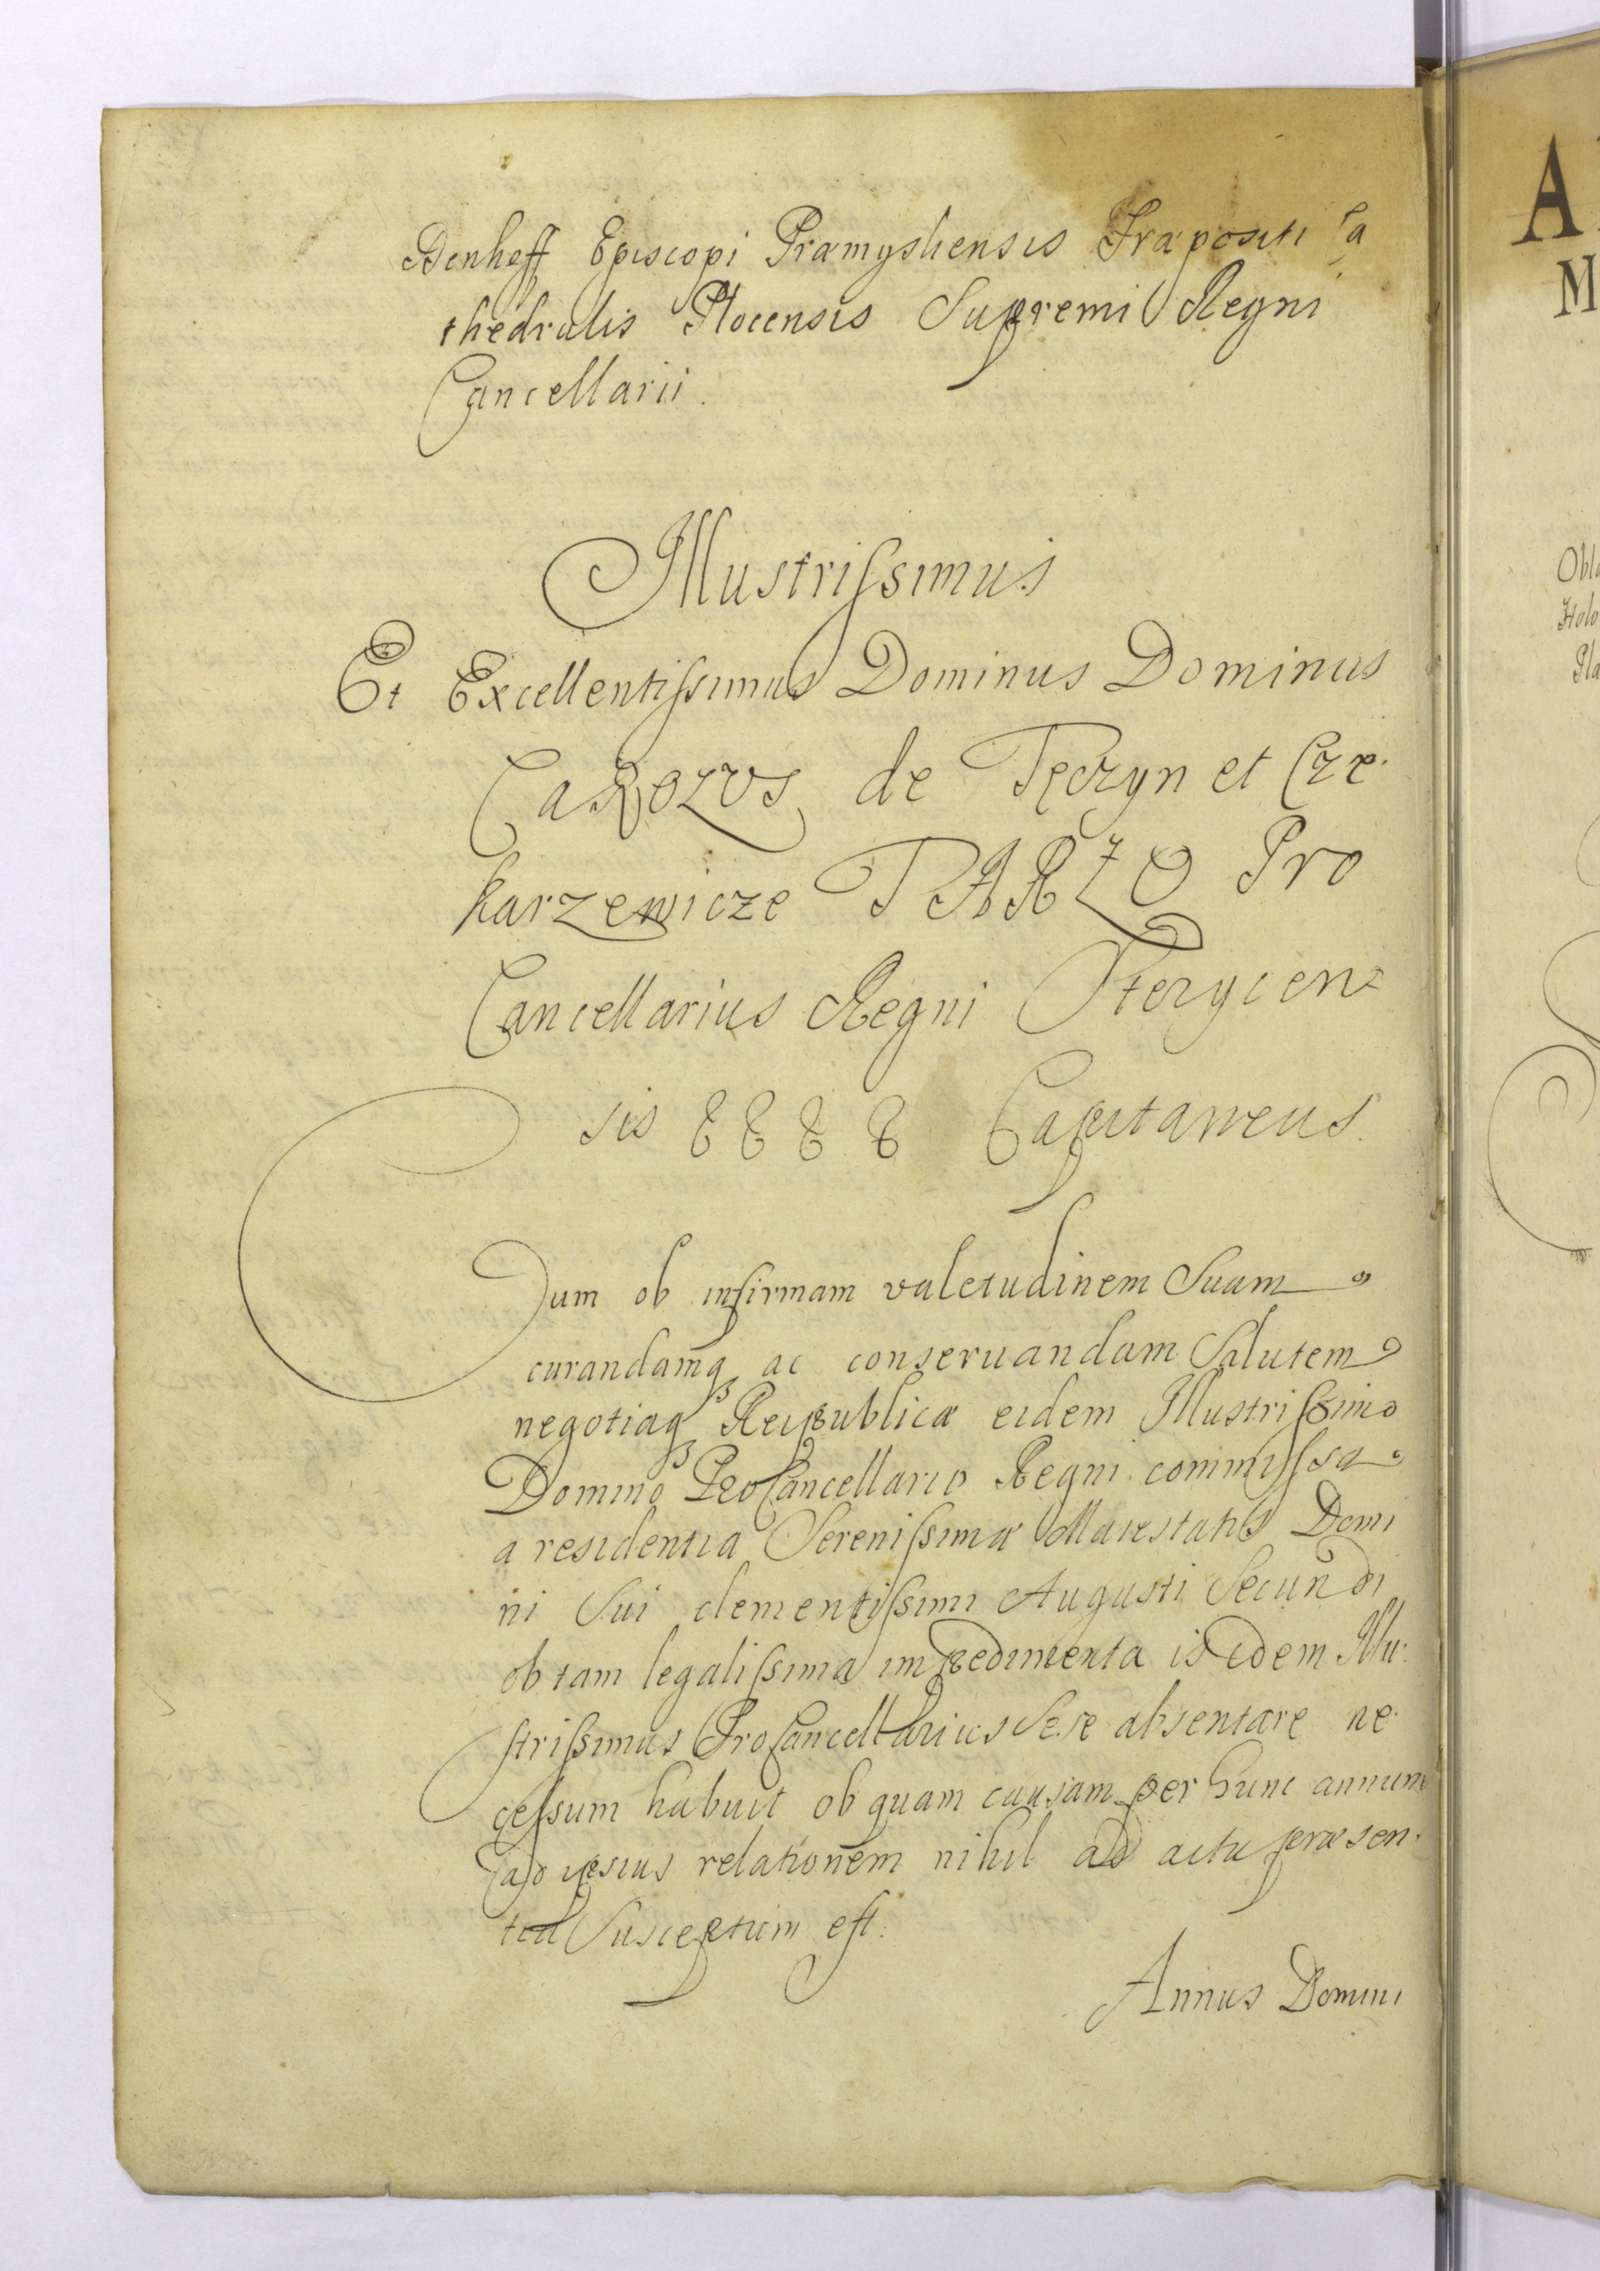 Denheff Episcopi Præmysliensis Præpositi Ca
thedralis Plocensis Supremi Regni
Cancellarii.
Illustrissimus
Et Excellentissimus Dominus Dominus
CaROLVS de Teczyn et Cze-
karzewicze TARLO Pro
Cancellarius Regni Stezycen=
sis &&&& Capitaneus.
Dum ob infirmam valetudinem Suam
curandamq3 ac conseruandam Salutem
negotiaq3 Reipublicæ eidem Illustrissimo
Domino ProCancellario Regni commissa
a residentia Serenissimæ Maiestatis Domi
ni Sui clementissimi Augusti Secundi
ob tam legalissima impedimenta isdem Illu-
strissimus ProCancellarius Sese absentare ne-
cessum habuit ob quam causam per hunc annum
ad ipsius relationem nihil ad acta præsen-
tia Susceptum est.
Annus Domini
A
M
Obla
Holo
Pla